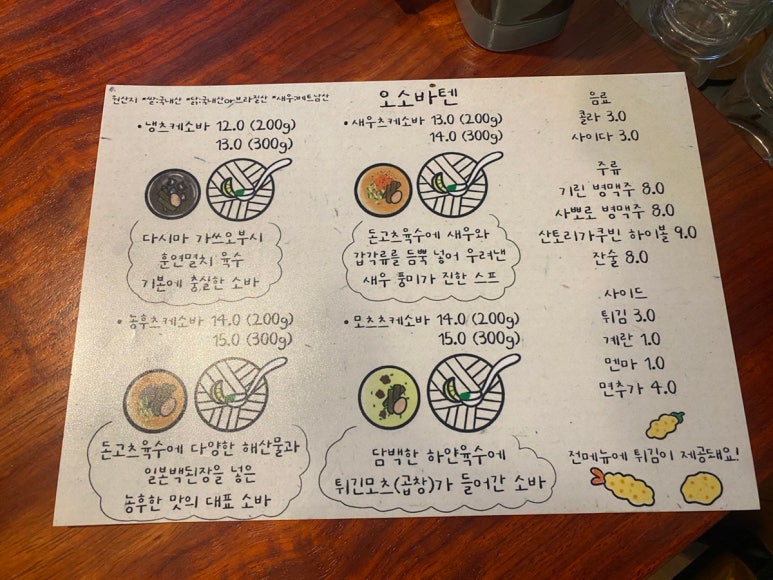 원산지 *쌀:국내산 *닭:국내산or브라질산 *새우:베트남산
오소바텐
• 냉츠케소바 12.0 (200g)
13.0 (300g)
다시마 가쓰오부시
훈연멸치 육수
기본에 충실한 소바
• 새우츠케소바 13.0 (200g)
14.0 (300g)
돈고츠육수에 새우와
갑각류를 듬뿍 넣어 우려낸
새우 풍미가 진한 스프
• 농후츠케소바 14.0 (200g)
15.0 (300g)
돈고츠육수에 다양한 해산물과
일본백된장을 넣은
농후한 맛의 대표 소바
• 모츠츠케소바 14.0 (200g)
15.0 (300g)
담백한 하얀육수에
튀긴모츠(곱창)가 들어간 소바
음료
콜라 3.0
사이다 3.0
주류
기린 병맥주 8.0
사뽀로 병맥주 8.0
산토리가쿠빈 하이볼 9.0
잔술 8.0
사이드
튀김 3.0
계란 1.0
멘마 1.0
면추가 4.0
전메뉴에 튀김이 제공돼요!